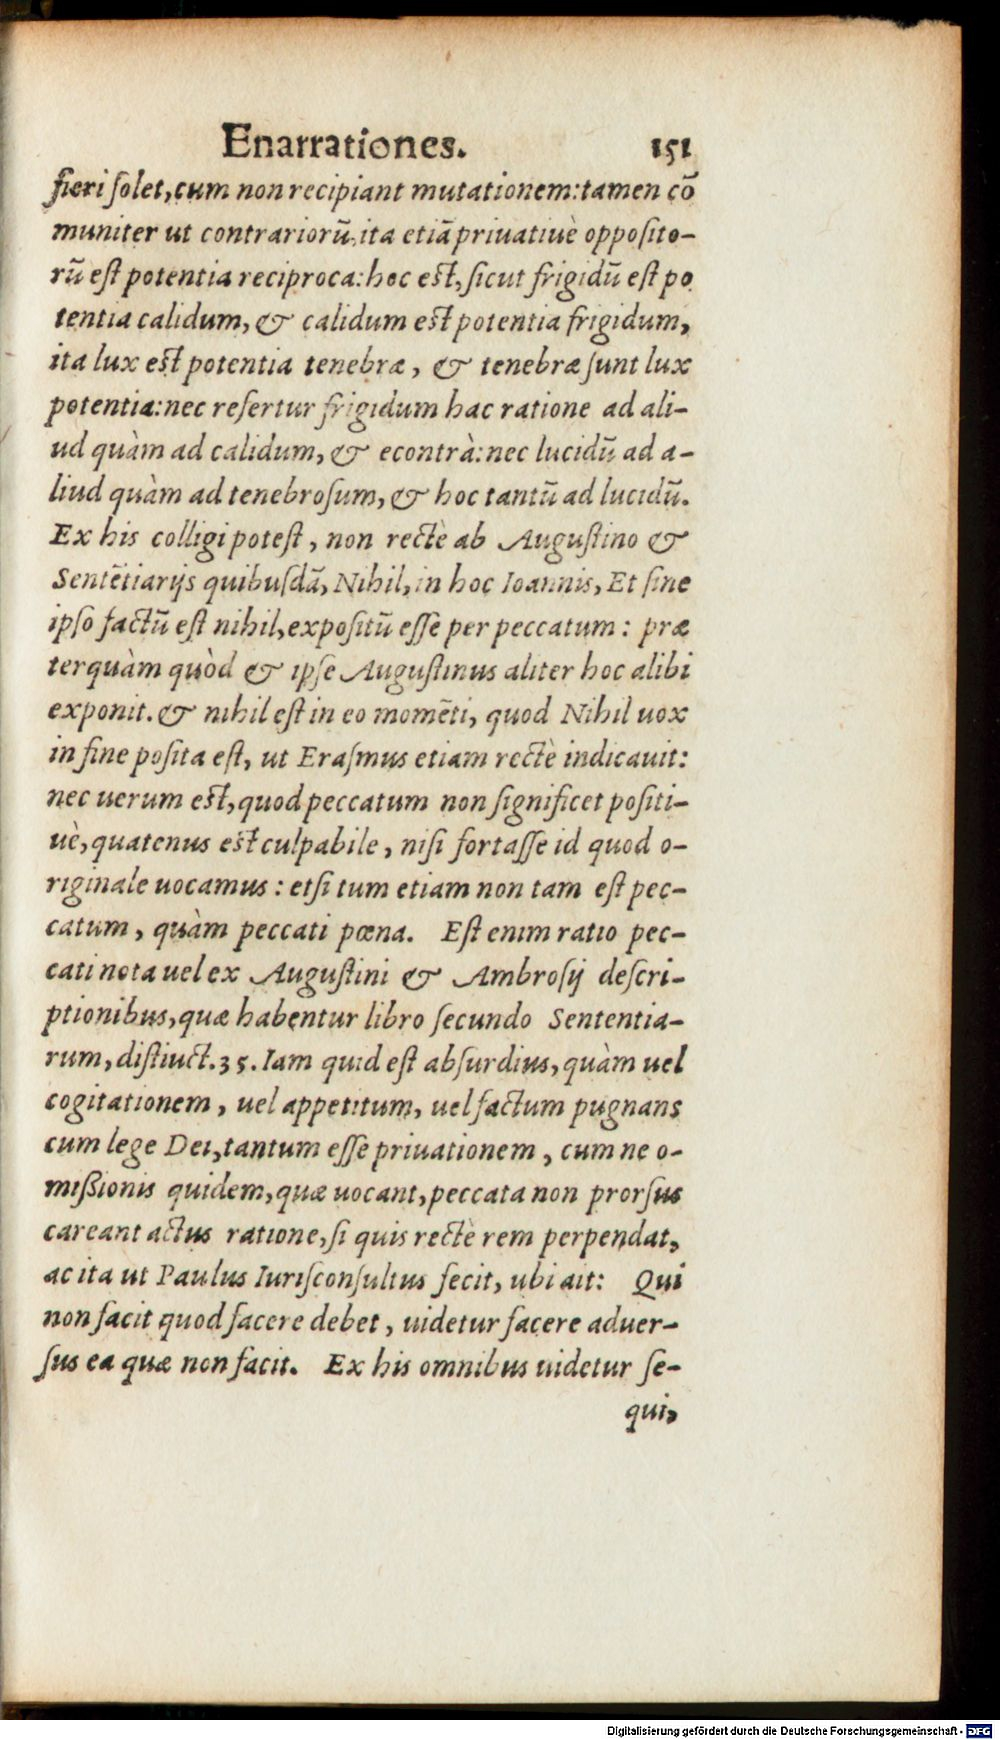 Enarrationes. 151
fieri ſolet, cum non recipiant mutationem: tamen cō
muniter ut contrariorũ, ita etiã priuatiuè oppoſito-
rũ eſt potentia reciproca: hoc eſt, ſicut frigidũ eſt po
tentia calidum, & calidum eſt potentia frigidum,
ita lux eſt potentia tenebræ, & tenebræ ſunt lux
potentia: nec refertur frigidum hac ratione ad ali-
ud quàm ad calidum, & econtrà: nec lucidũ ad a-
liud quàm ad tenebroſum, & hoc tantũ ad lucidũ.
Ex his colligi poteſt, non rectè ab Auguſtino &
Sentẽtiarijs quibuſdã, Nihil, in hoc Ioannis, Et ſine
ipſo factũ eſt nihil, expoſitũ eſſe per peccatum: præ
terquàm quòd & ipſe Auguſtinus aliter hoc alibi
exponit. & nihil eſt in eo momẽti, quod Nihil uox
in fine poſita eſt, ut Eraſmus etiam rectè indicauit:
nec uerum eſt, quod peccatum non ſignificet poſiti-
uè, quatenus eſt culpabile, niſi fortaſſe id quod o-
riginale uocamus: etſi tum etiam non tam eſt pec-
catum, quàm peccati pœna. Eſt enim ratio pec-
cati nota uel ex Auguſtini & Ambroſij deſcri-
ptionibus, quæ habentur libro ſecundo Sententia-
rum, diſtiuct. 35. Iam quid eſt abſurdius, quàm uel
cogitationem, uel appetitum, uel factum pugnans
cum lege Dei, tantum eſſe priuationem, cum ne o-
mißionis quidem, quæ uocant, peccata non prorſus
careant actus ratione, ſi quis rectè rem perpendat,
ac ita ut Paulus Iuriſconſultus fecit, ubi ait: Qui
non facit quod facere debet, uidetur facere aduer-
ſus ea quæ non facit. Ex his omnibus uidetur ſe-
qui,
Digitalisierung gefördert durch die Deutsche Forschungsgemeinschaft - DFG